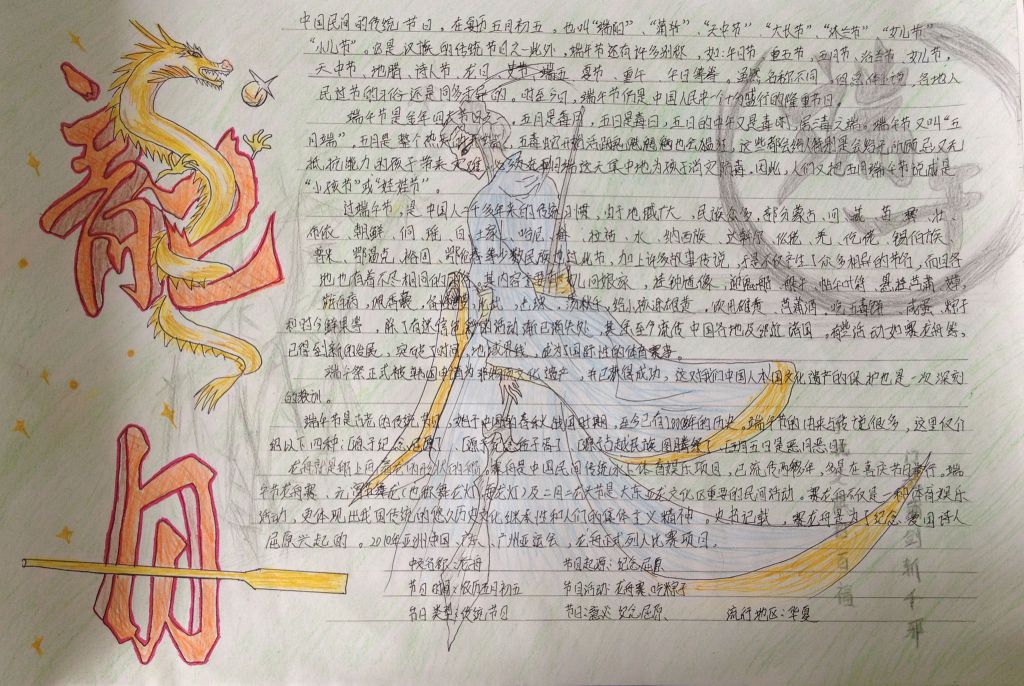 龍舟
端午
中国民间的传统节日。在每年五月初五。也叫“端阳”、“蒲节”、“天中节”、“大长节”、“沐兰节”、“女儿节”
“小儿节”。它是汉族的传统节日之一。此外,端午节还有许多别称,如:午日节、重五节、五月节、浴兰节、女儿节、
天中节、地腊、诗人节、龙日、端五、夏节、重午、午日等等。虽然名称不同,但总体上说,各地人
民过节的习俗还是同多于异的。时至今日,端午节仍是中国人民中一个十分盛行的隆重节日。
端午节是全年。五月是毒月,五日是毒日,五日的中午又是毒时,居三毒之端。端午节又叫“五
月端”,五月是整个热
抵抗能力的孩子带来灾难,必须在端这天集中地为孩子消灾防毒。因此,人们又把五月端午节说成是
“小孩节”或“娃娃节”。
过端午节,是中国人二千多年来的传统习惯,由于地域广大,民族众多,部分蒙古、回、藏、苗、彝、壮、
布依、朝鲜、侗、瑶、白、土家、哈尼、畲、拉祜、水、纳西族、达斡尔、仫佬、羌、仡佬、锡伯族、
普米、鄂温克、裕固、鄂伦春等少数民族也过此节,加上许多故事传说,于是不仅产生了众多相异的节名,而且各
地也有着不尽相同的习俗。其内容主要有:女儿回娘家、挂钟馗像、迎鬼船、躲午、帖午叶符、悬挂菖蒲、艾草、
游百病、佩香囊、备牲醴、比武、击球、荡秋千、给小孩涂雄黄、饮用雄黄、菖蒲酒、吃五毒饼、咸蛋、粽子
和时令鲜果等,除了有迷信色彩的活动渐已消失外,其余至今流传中国各地及邻近诸国。有些活动如赛龙舟等,
已得到新的发展,突破了时间、地域界线,成为了国际性的体育赛事。
端午祭正式被韩国申请为非物质文化遗产,并已获得成功,这对我们中国人本国文化遗产的保护也是一次深刻
的教训。
端午节是古老的传统节日,始于中国的春秋战国时期,至今已有2000多年的历史。端午节的由来与传说很多,这里仅介
绍以下四种:[源于纪念屈原] [源于纪念伍子胥] [源于古越民族图腾祭] [五月五日是恶月恶日]
龙舟就是船上画着龙的形状的船。赛舟是中国民间传统水上体育娱乐项目,已流传两千多年,多是在喜庆节日举行。端
午节龙舟赛、元宵节舞龙(也称舞龙灯)及二月二龙头节是大东亚龙文化区重要的民间活动。赛龙舟不仅是一种体育娱乐
活动,更体现出我国传统的悠久历史文化继承性和人们的集体主义精神。史书记载,赛龙舟是为了纪念爱国诗人
屈原兴起的。2010年亚洲中国、广东、广州亚运会,龙舟正式列入比赛项目。
中文名称:龙舟 节日起源:纪念屈原
节日时间:农历五月初五 节日活动:龙舟赛、吃粽子
节日类型:传统节日 节日意义:纪念屈原 流行地区:华夏